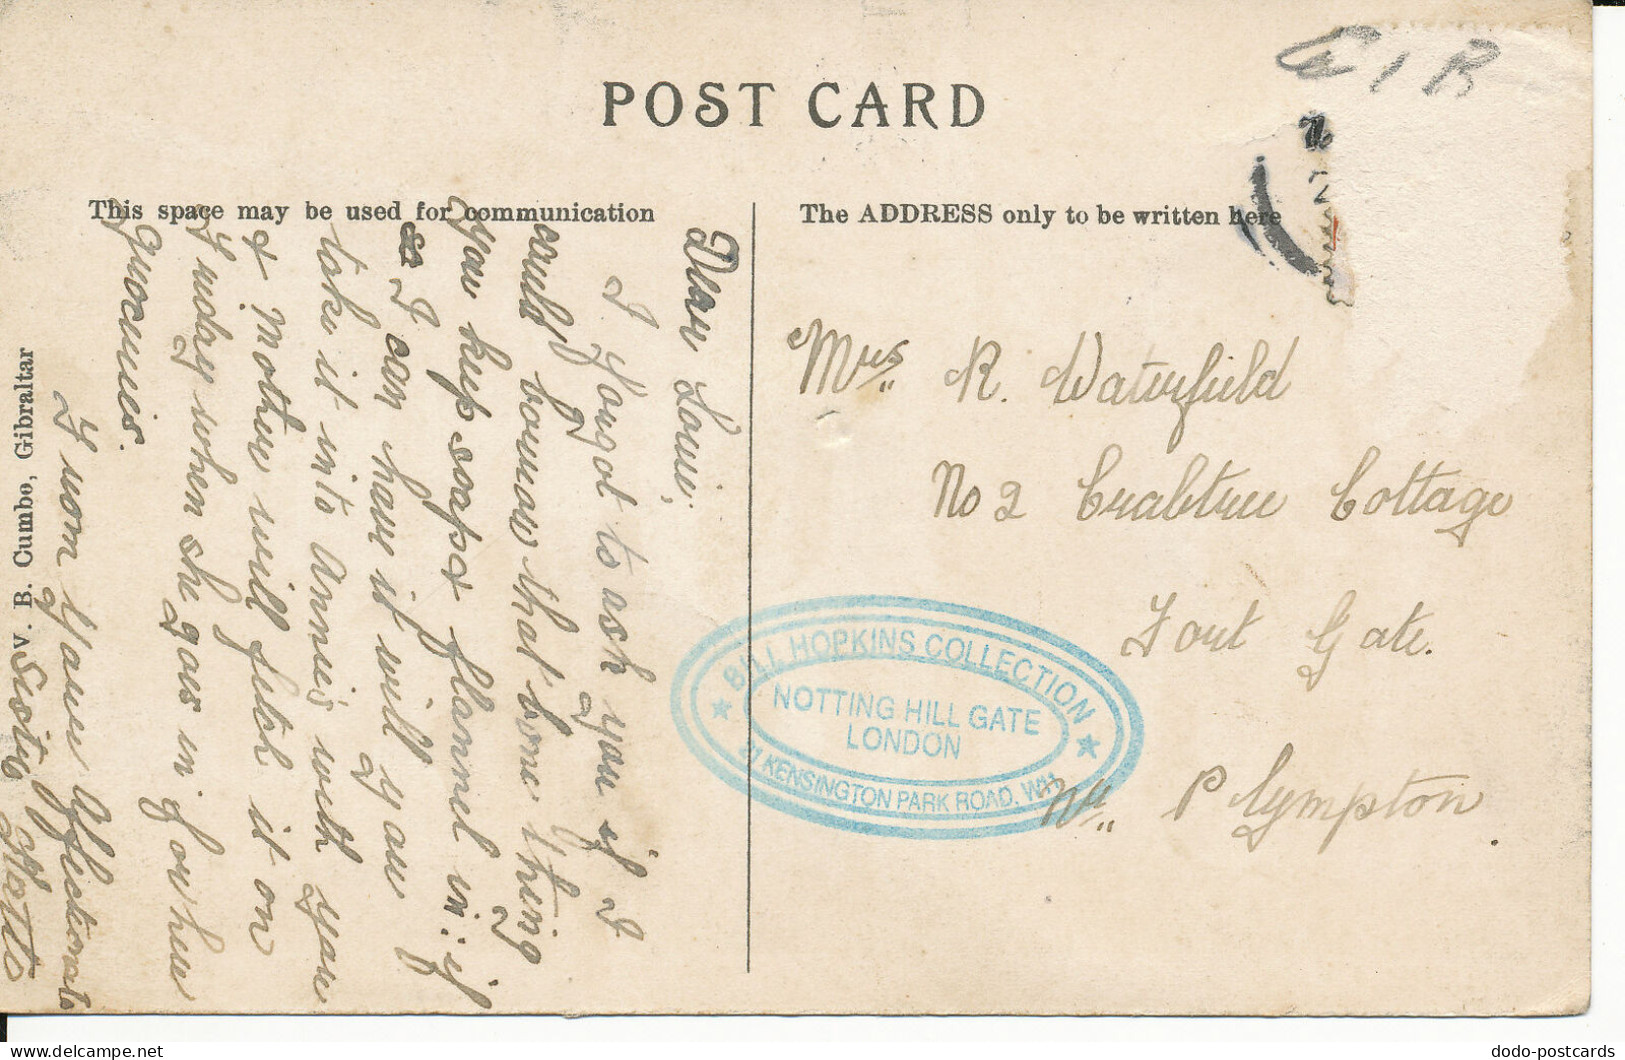 POST CARD
This space may be used for communication
The ADDRESS only to be written here
Dear Louie,
I forgot to ask you if I
could borrow that bone thing
you keep soap & flannel in: if
so I can have it will you
take it into Annie's with you
& Mother will fetch it on
Friday when she goes in for her
Groceries.
From Your Affectionate
Sister Hatts
V. B. Cumbo, Gibraltar
Mrs R. Waterfield
No 2 Crabtree Cottage
Fort Gate.
Nr Plympton.
BILL HOPKINS COLLECTION
NOTTING HILL GATE
LONDON
21 KENSINGTON PARK ROAD. W11
dodo-postcards